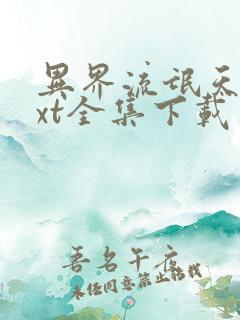 異界流氓天
xt全集下載
吾名午夜
未经同意禁止转载